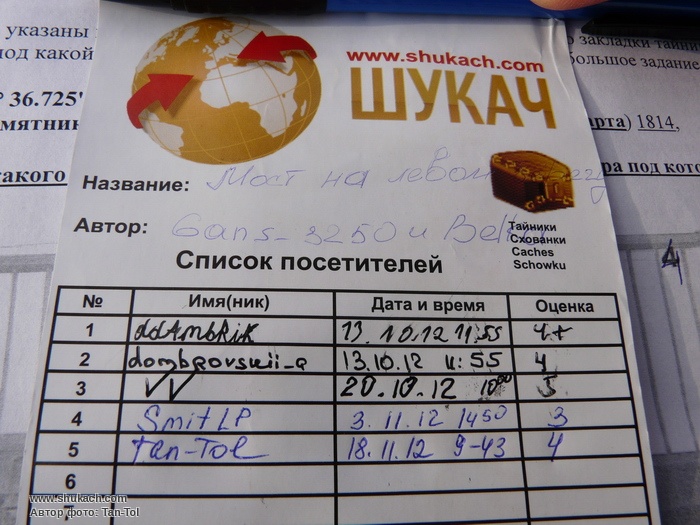 указаны
о закладки тайни
под какой
большое задание
www.shukach.com
ШУКАЧ
° 36.725'
амятник
арта) 1814,
такого
ра под кото
Название: Мост на левом
Автор: Gans_3250 и
Тайники
Схованки
Caches
Schowku
Список посетителей
№ Имя(ник) Дата и время Оценка
1 ddAmbRiK 13.10.12 11:55 4+
2 dombrovskii_a 13.10.12 11:55 4
3 VV 20.10.12 10⁰⁰ 5
4 SmitLP 3.11.12 1450 3
5 Tan-Tol 18.11.12 9-43 4
6
7
4
www.shukach.com
Автор фото: Tan-Tol